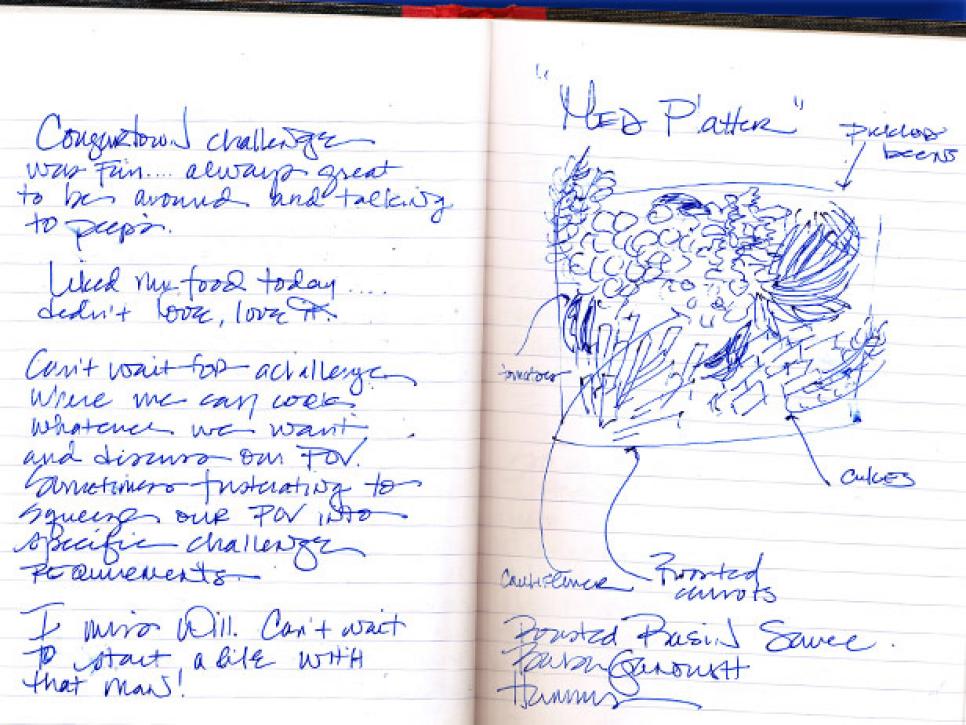 Cougartown challenge
was fun.... always great
to be around and talking
to peeps.
Liked my food today ....
didn't love, love it.
Can't wait for a challenge
where we can cook
whatever we want
and discuss our POV.
Sometimes frusterating to
squeeze our POV into
specific challenge
requirements.
I miss Will. Can't wait
to start a life with
that man!
"MED Platter"
pickled
beens
tomatoes
cukes
Cauliflower
Roasted
carrots
Roasted Raisin Sauce.
Baba Ganoush
Hummus